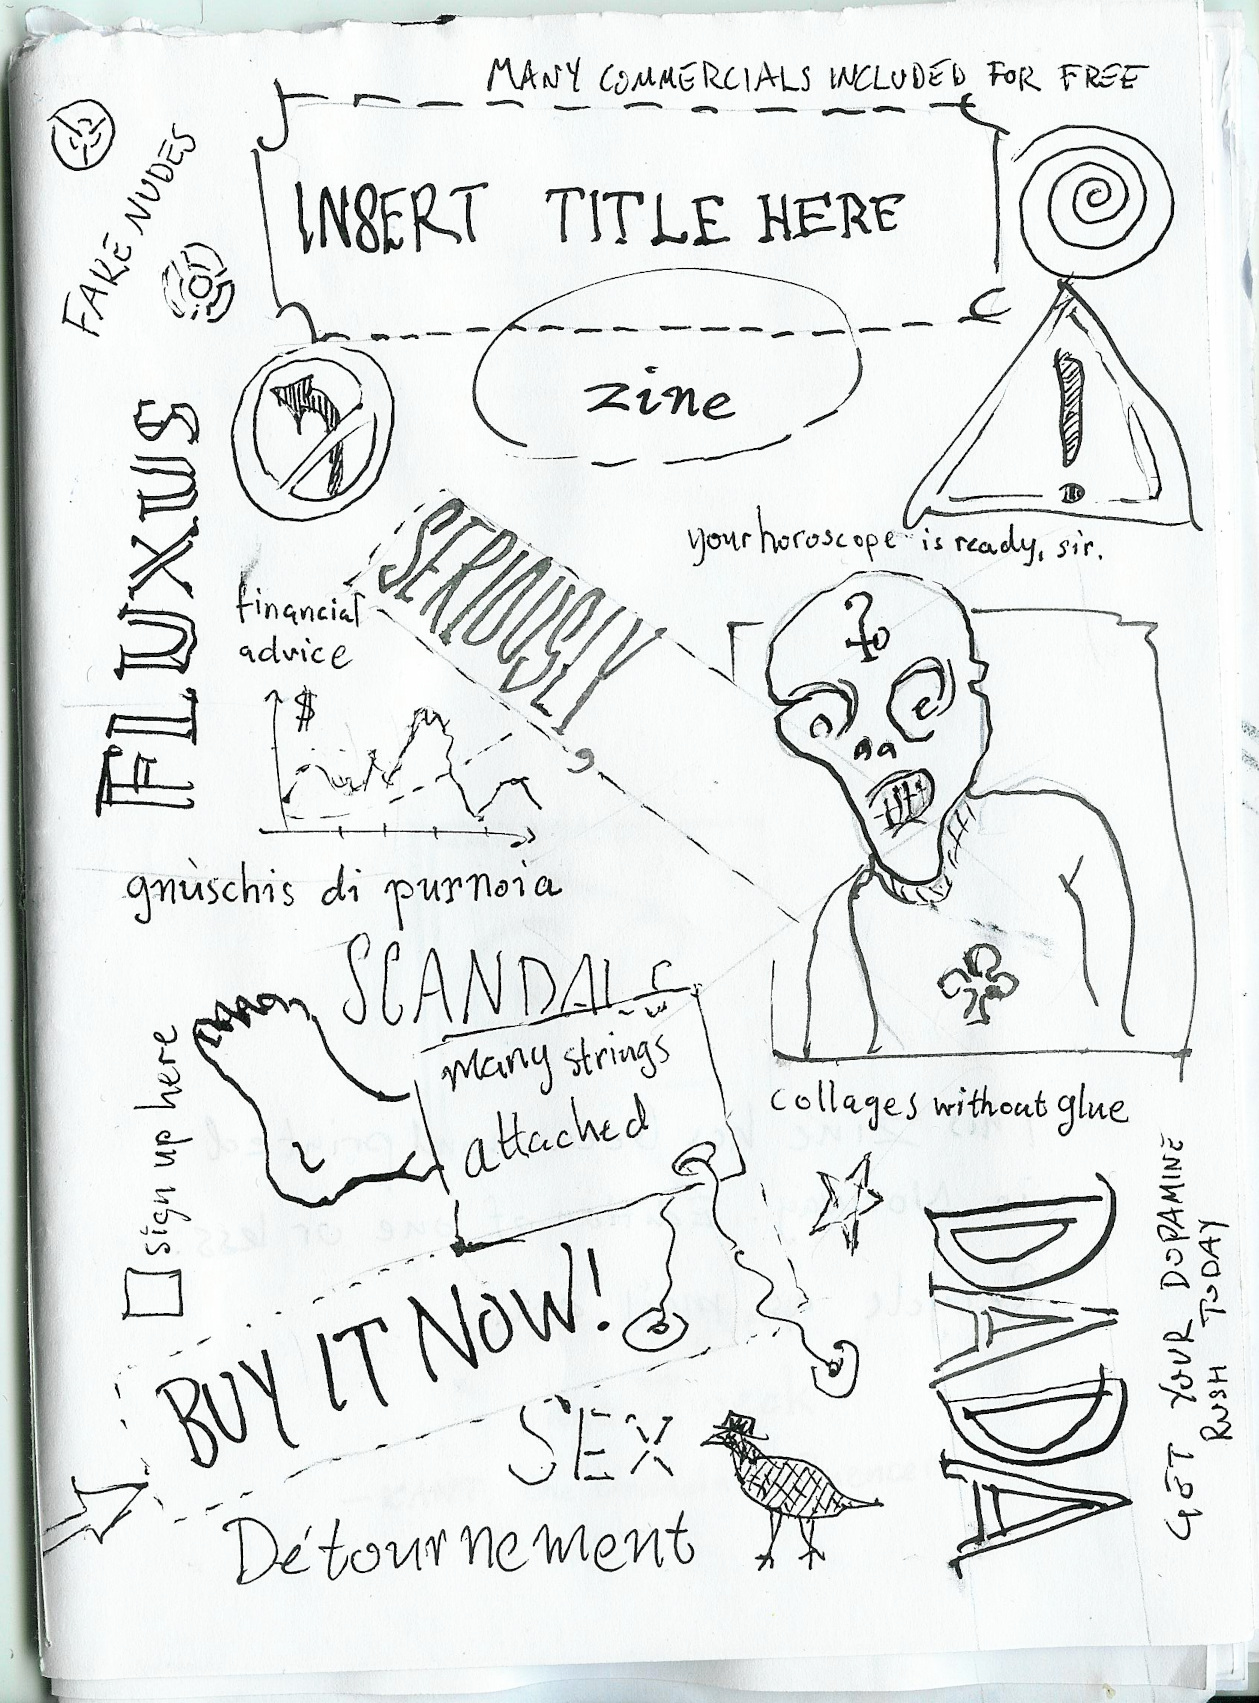 MANY COMMERCIALS INCLUDED FOR FREE
FAKE NUDES
INSERT TITLE HERE
zine
FLUXUS
your horoscope is ready, sir.
SERIOUSLY
financial
advice
$
?
gnùschis di purnoia
SCANDALS
many strings
attached
sign up here
collages without glue
BUY IT NOW!
DADA
GET YOUR DOPAMINE
RUSH TODAY
SEX
Détournement